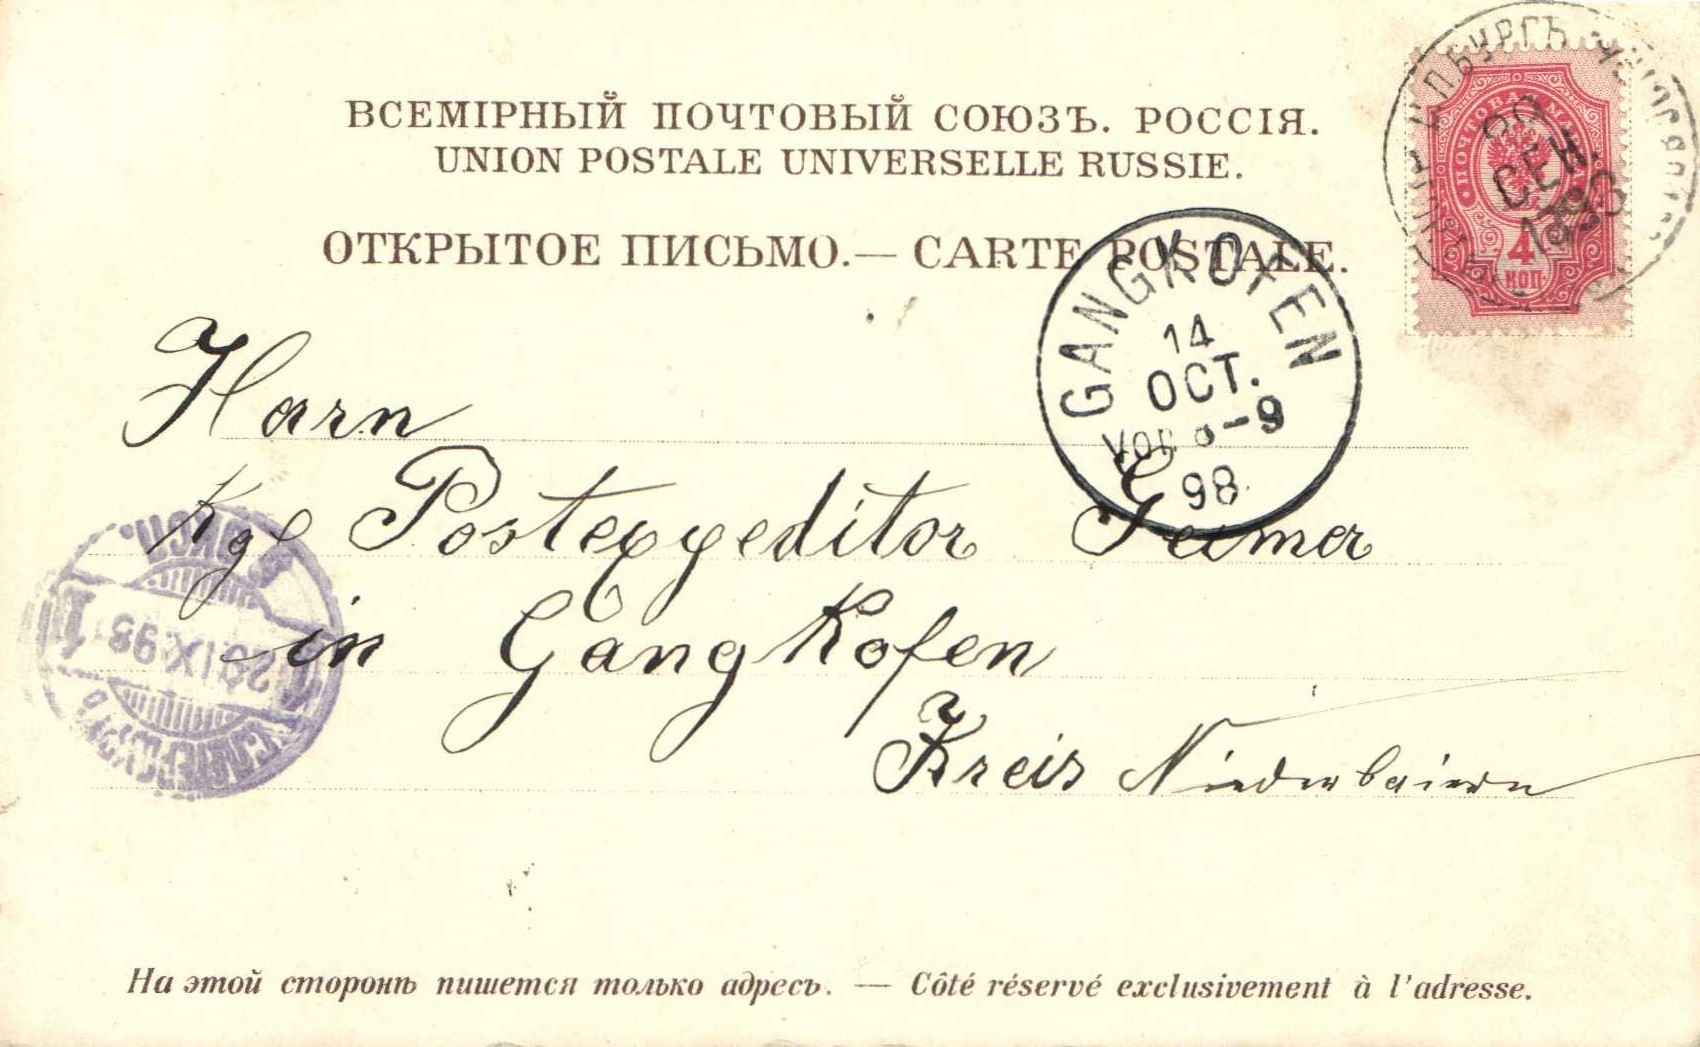 ВСЕМІРНЫЙ ПОЧТОВЫЙ СОЮЗЪ. РОССІЯ.
UNION POSTALE UNIVERSELLE RUSSIE.
ОТКРЫТОЕ ПИСЬМО.— CARTE POSTALE.
ПОЧТОВАЯ МАРКА
4
КОП.
СЕН.
1898
GANGKOFEN
14
OCT.
VOR 8-9
98
Harn
Kgl Postexpeditor
in Gangkofen
Kreis Niederbaiern
1
IX 98
На этой сторонѣ пишется только адресъ. — Côté réservé exclusivement à l'adresse.